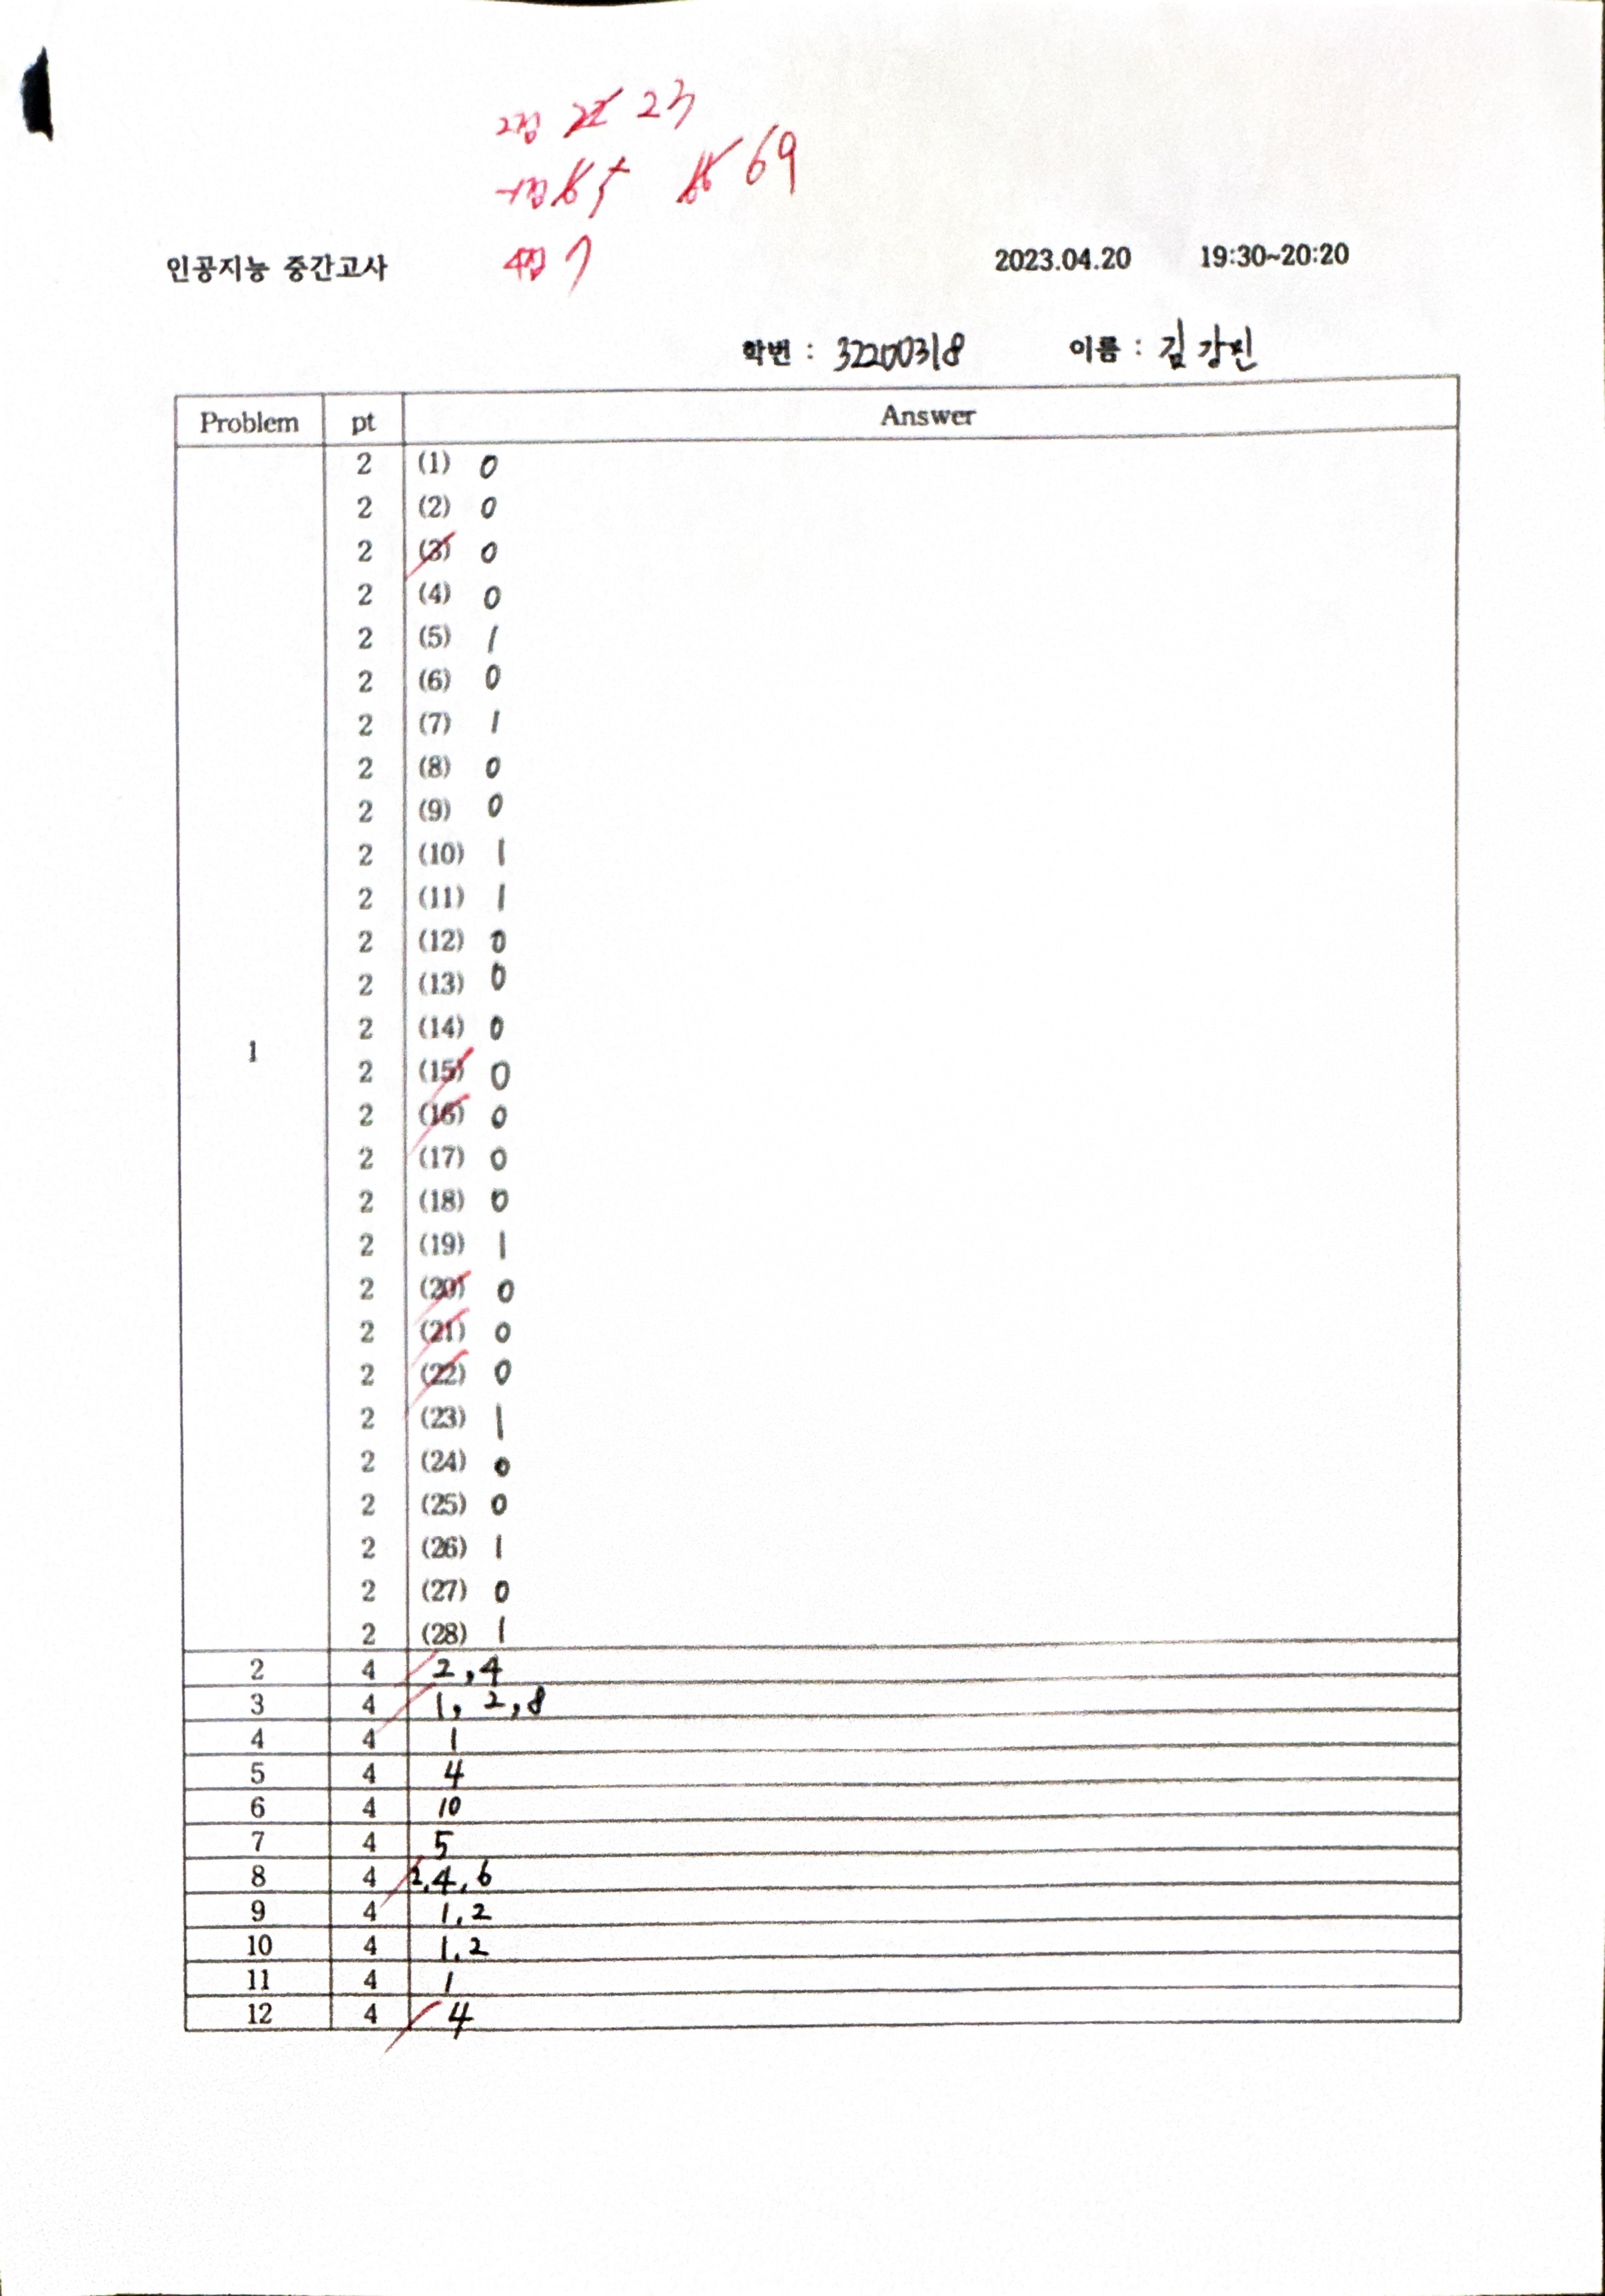 2점 22 23
-1점 5 69
4점 7
인공지능 중간고사 2023.04.20 19:30~20:20
학번 : 32200318 이름 : 김강민
Problem pt Answer
2 (1) 0
2 (2) 0
2 (3) 0
2 (4) 0
2 (5) 1
2 (6) 0
2 (7) 1
2 (8) 0
2 (9) 0
2 (10) 1
2 (11) 1
2 (12) 0
2 (13) 0
2 (14) 0
1
2 (15) 0
2 (16) 0
2 (17) 0
2 (18) 0
2 (19) 1
2 (20) 0
2 (21) 0
2 (22) 0
2 (23) 1
2 (24) 0
2 (25) 0
2 (26) 1
2 (27) 0
2 (28) 1
2 4 2,4
3 4 1, 2, 8
4 4 1
5 4 4
6 4 10
7 4 5
8 4 2,4,6
9 4 1,2
10 4 1,2
11 4 1
12 4 4